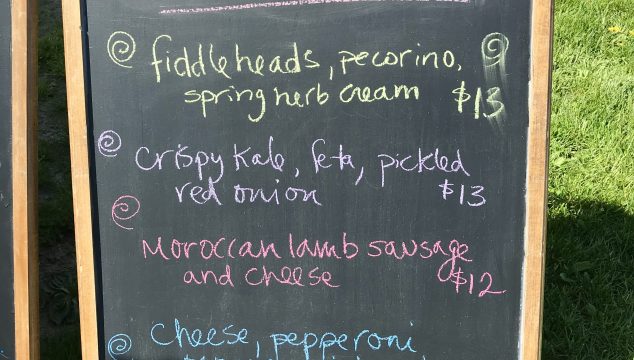 fiddleheads, pecorino,
spring herb cream $13
crispy kale, feta, pickled
red onion $13
Moroccan lamb sausage
and cheese $12
cheese, pepperoni,